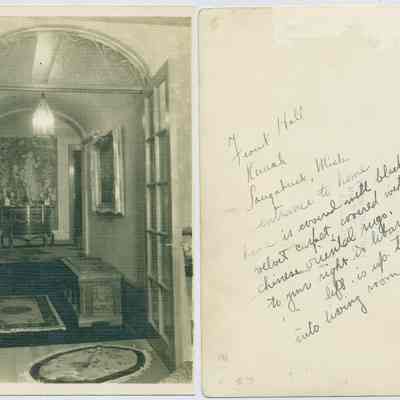 Front Hall
Saugatuck, Mich
entrance to home
is covered with black
velvet carpet, covered with
chinese oriental rugs.
to your right is
left is up
into living room